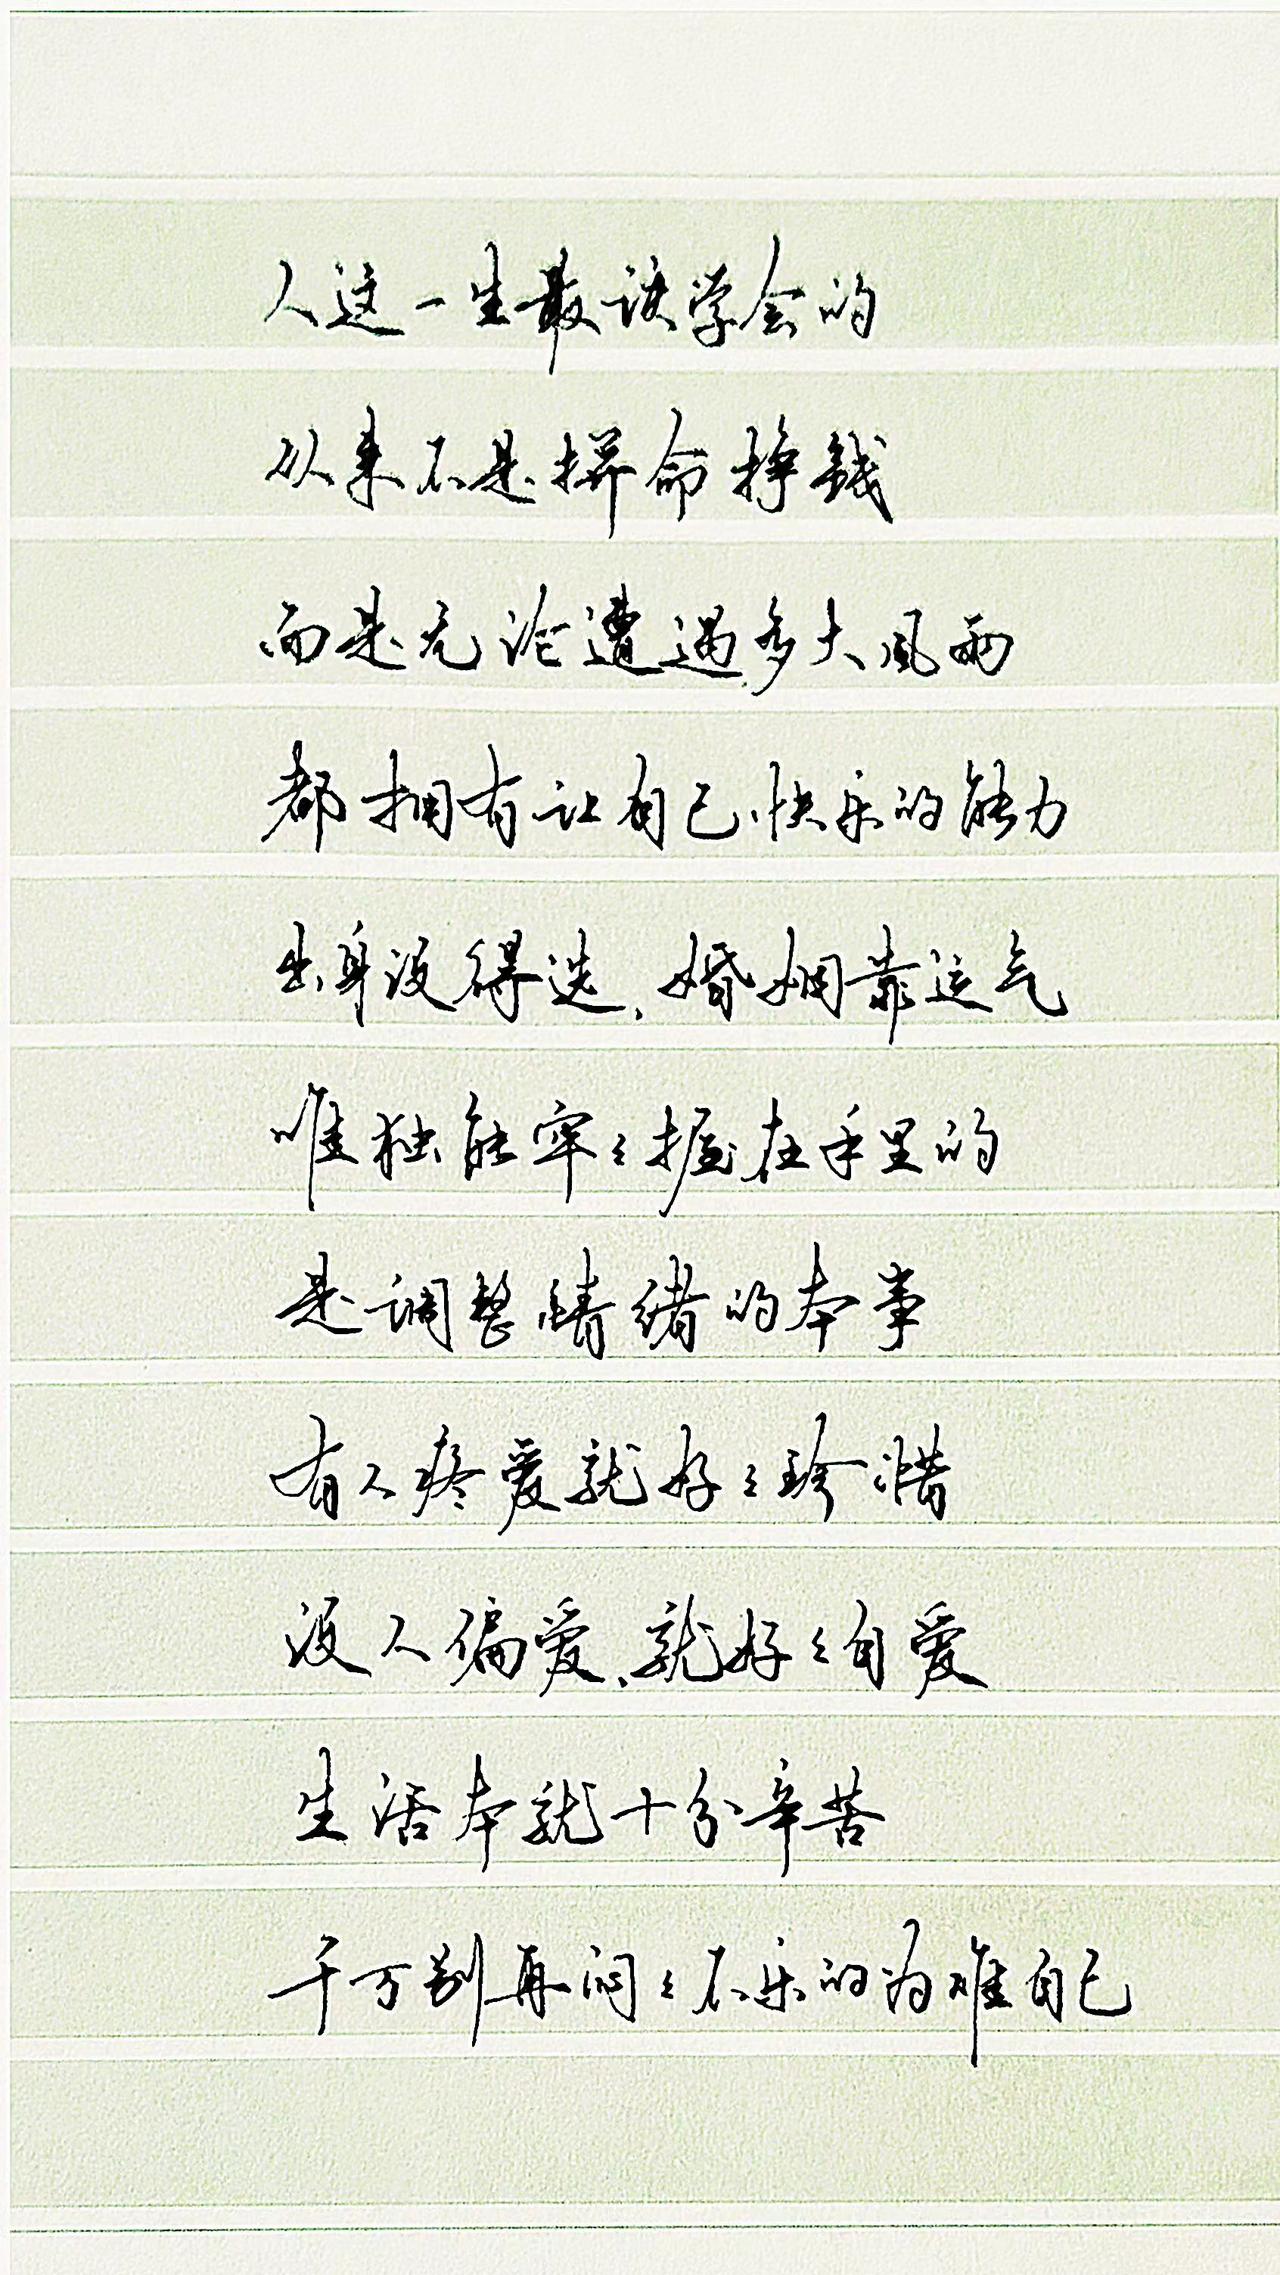 人这一生最该学会的
从来不是拼命挣钱
而是无论遭遇多大风雨
都拥有让自己快乐的能力
出身没得选、婚姻靠运气
唯独能牢々握在手里的
是调整情绪的本事
有人疼爱就好々珍惜
没人偏爱、就好々自爱
生活本就十分辛苦
千万别再闷々不乐的为难自己